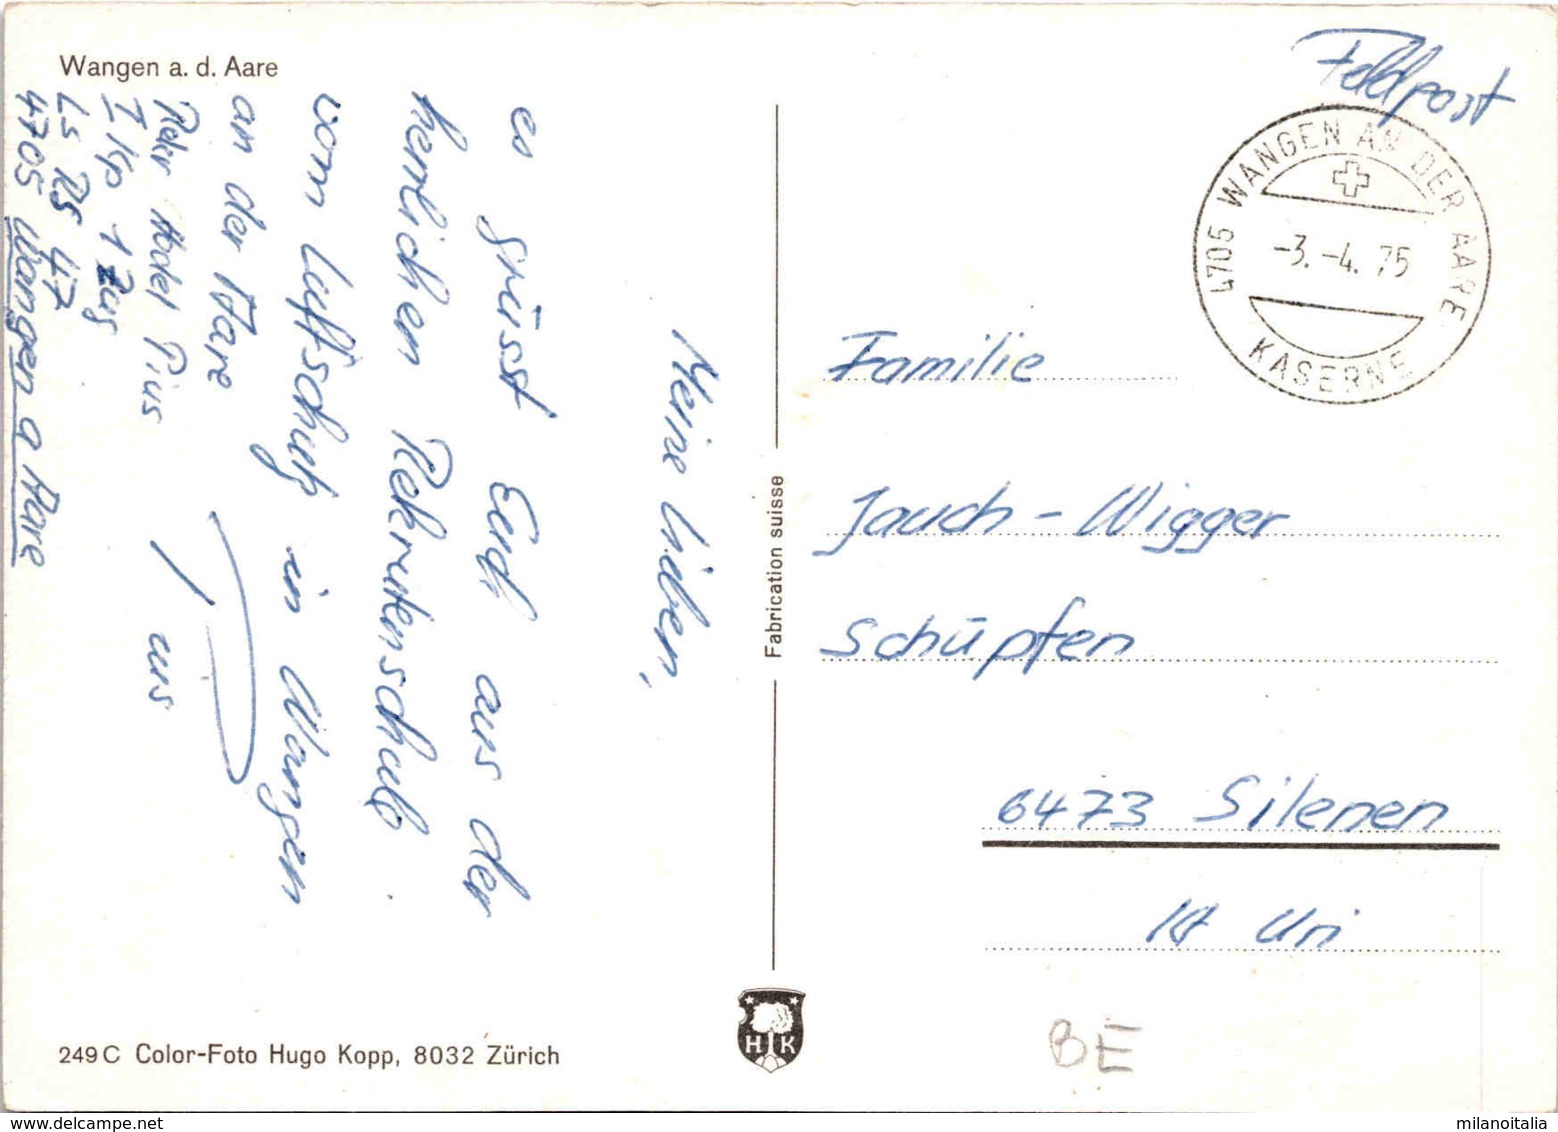 Wangen a. d. Aare
Meine Lieben,
es grüsst Euch aus der
herrlichen Rekrutenschule
vom Luftschutz in Wangen
an der Aare
Pius
Rekr Hodel Pius
I Kp 1 Zug
Ls RS 47
4705 Wangen a Aare
249 C Color-Foto Hugo Kopp, 8032 Zürich
Fabrication suisse
H K
Feldpost
4705 WANGEN AN DER AARE
-3.-4.75
KASERNE
Familie
Jauch-Wigger
Schüpfen
6473 Silenen
Kt Uri
BE
www.delcampe.net
milanoitalia